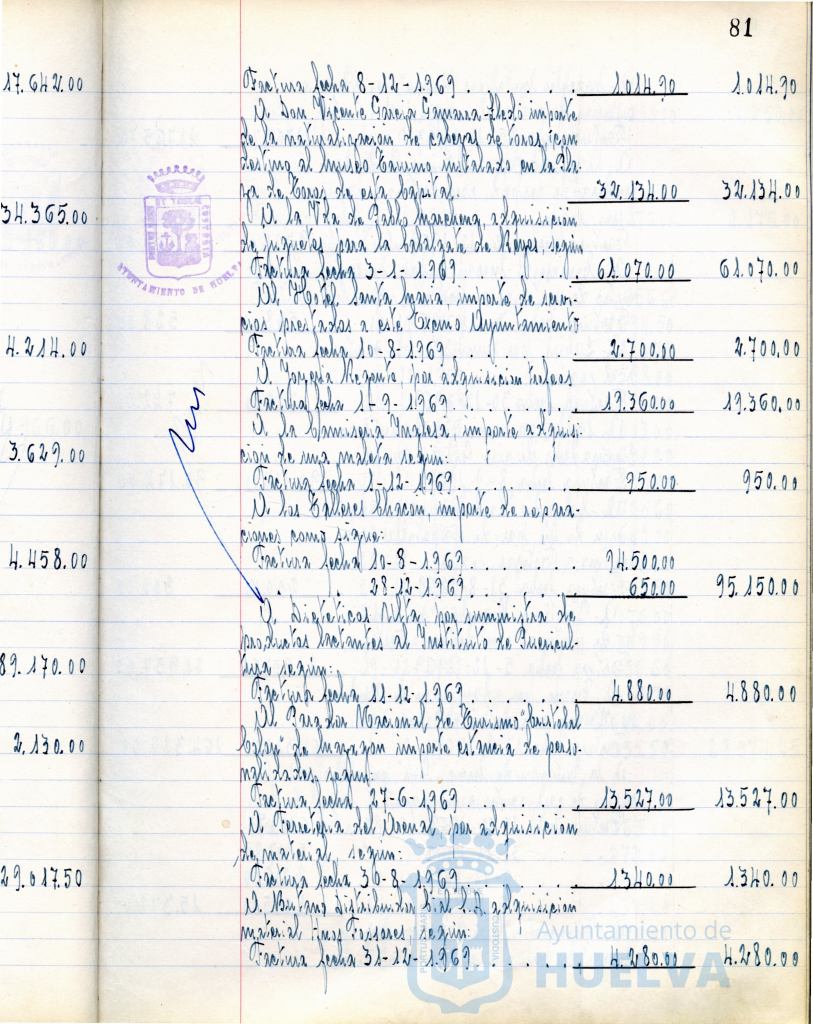 81
17.642.00
Factura fecha 8-12-1969 . . . . . . 1.014.90 1.014.90
A Don Vicente Garcia importe
de la naturalizacion de cabezas de toros, con
destino al Museo Taurino instalado en la Pla-
za de Toros de esta Capital. 32.134.00 32.134.00
34.365.00
A la Vda de Pablo Marchena, adquisicion
de juguetes para la Cabalgata de Reyes, según
Factura fecha 3-1-1969 . . . . 61.070.00 61.070.00
Al Hotel Santa Maria, importe de servi-
cios prestados a este Excmo Ayuntamiento
4.214.00
Factura fecha 10-8-1969 . . . . 2.700.00 2.700.00
A Joyeria Regente, por adquisicion trofeos
Factura fecha 1-9-1969 . . . . 19.360.00 19.360.00
A la Camiseria Inglesa, importe adquisi-
3.629.00
cion de una maleta según:
Factura fecha 1-12-1969 . . . . 950.00 950.00
A los Talleres Chacon, importe de repara-
ciones como sigue:
4.458.00
Factura fecha 10-8-1969 . . . . 94.500.00
" " 28-12-1969 . . . . 650.00 95.150.00
A Dieteticos por suministra de
productos lactantes al Instituto de Puericul-
89.170.00
tura según:
Factura fecha 11-12-1969 . . . . 4.880.00 4.880.00
Al Parador Nacional de Turismo "Cristobal
2,130.00
Colon" de Mazagon importe estancia de perso-
nalidades, según
Factura fecha 27-6-1969 . . . . 13.527.00 13.527.00
A Ferreteria del Arenal, por adquisicion
de material, según:
29.017.50
Factura fecha 30-8-1969 . . . . 1.340.00 1.340.00
A Butano Distribuidor S.A. adquisicion
material según:
Factura fecha 31-12-1969 . . . . 4.280.00 4.280.00
AYUNTAMIENTO DE HUELVA
Ayuntamiento de
HUELVA